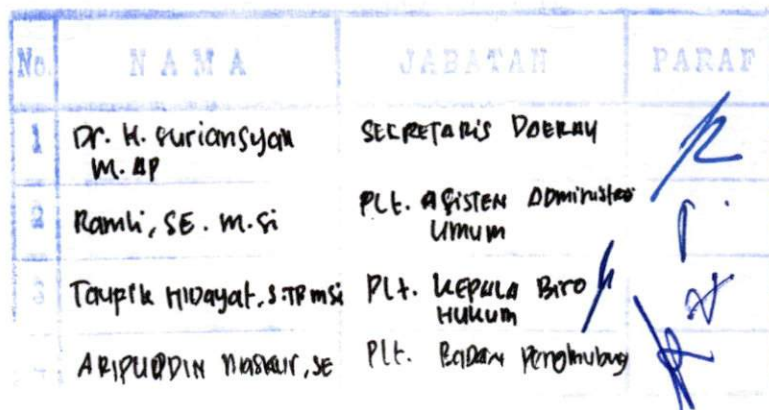 No. NAMA JABATAN PARAF
1 Dr. H. Suriansyah SECRETARIS DAERAH
M. AP
2 Ramli, SE. M.Si Plt. ASISTEN ADMINISTRASI
UMUM
3 Taupik Hidayat, S.TP MSi Plt. KEPALA BIRO
HUKUM
ARIPUDDIN MASKUR, SE Plt. BADAN Penghubung